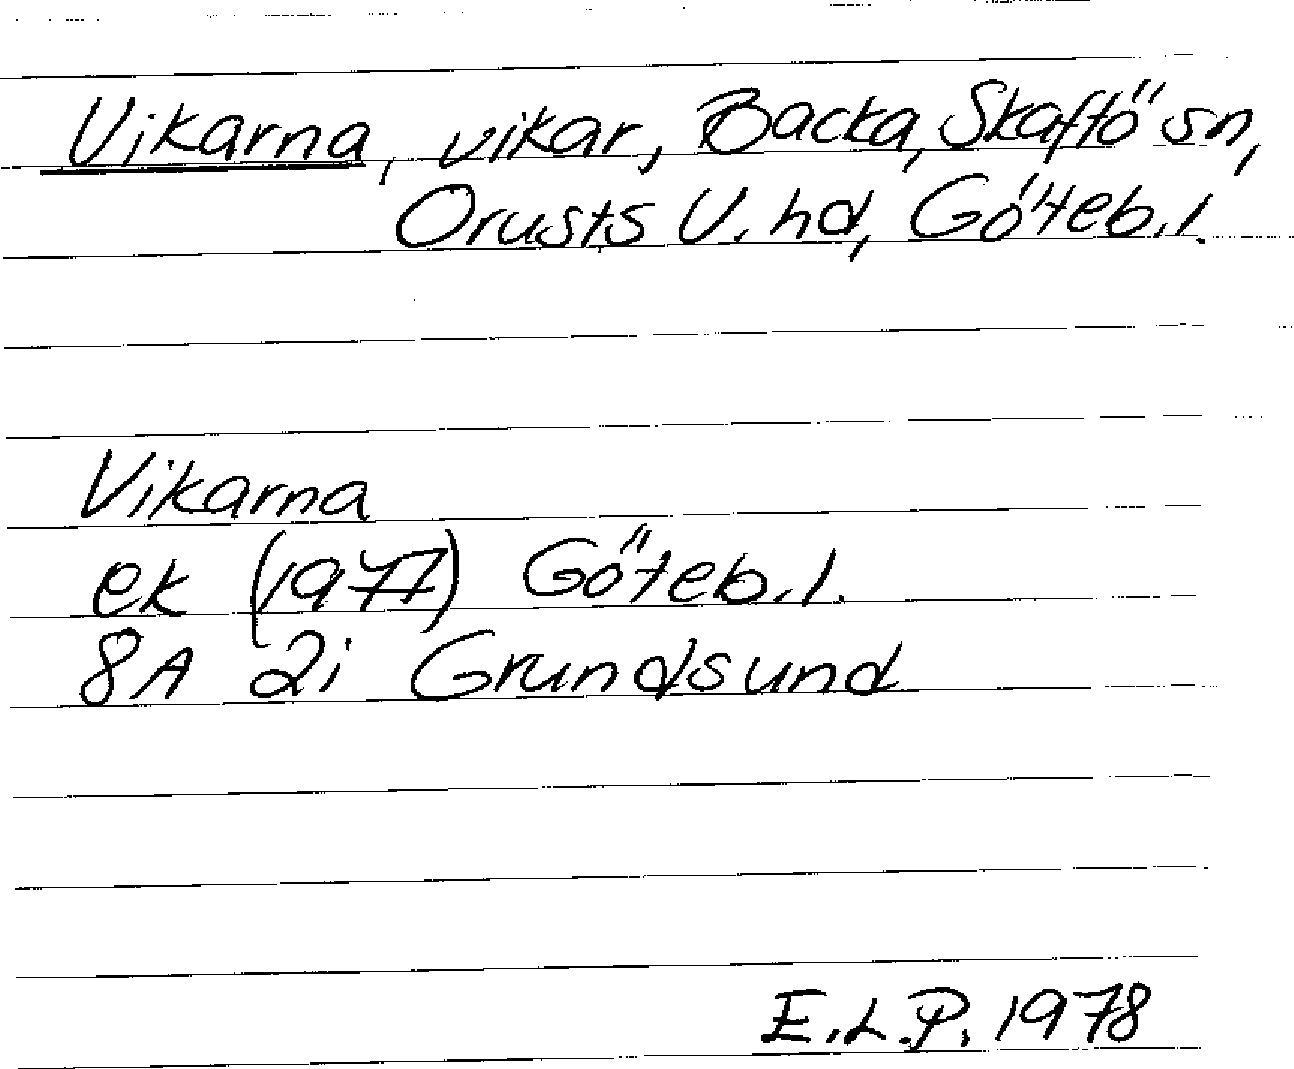 Vikarna, vikar, Backa, Skaftö sn,
Orusts V. hd, Göteb. l.
Vikarna
ek (1977) Göteb. l.
8A 2i Grundsund
E.L.P. 1978